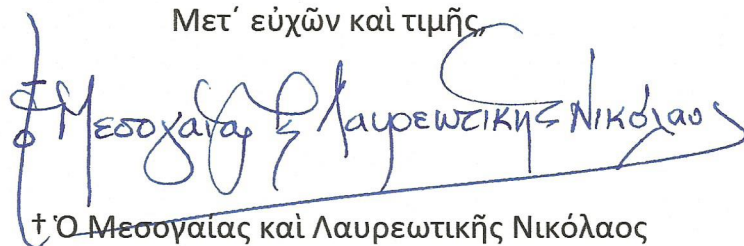 Μετ᾿ εὐχῶν καὶ τιμῆς,
† ὁ Μεσογαίας & Λαυρεωτικῆς Νικόλαος
† Ὁ Μεσογαίας καὶ Λαυρεωτικῆς Νικόλαος